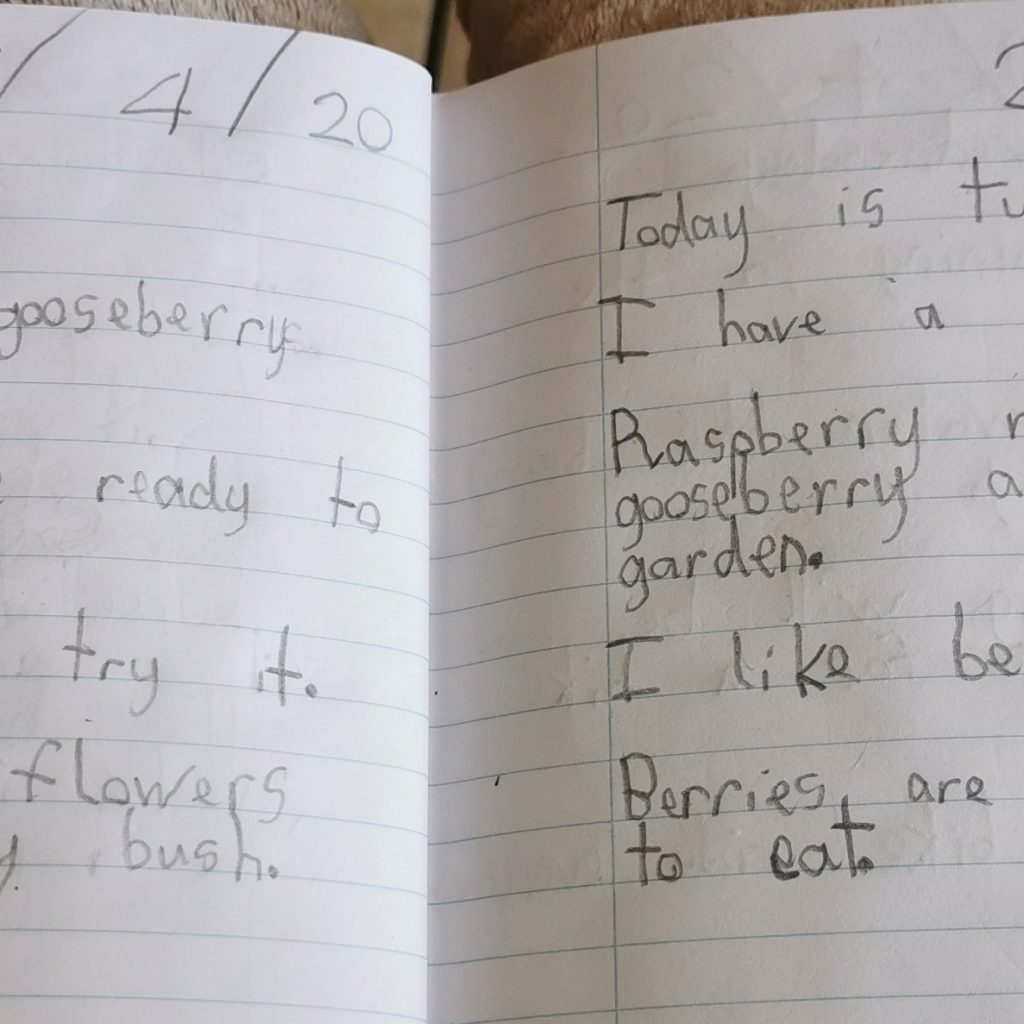 / 4 / 20
gooseberry
ready to
try it.
flowers
bush.
Today is
I have a
Raspberry
gooseberry
garden.
I like
Berries are
to eat.